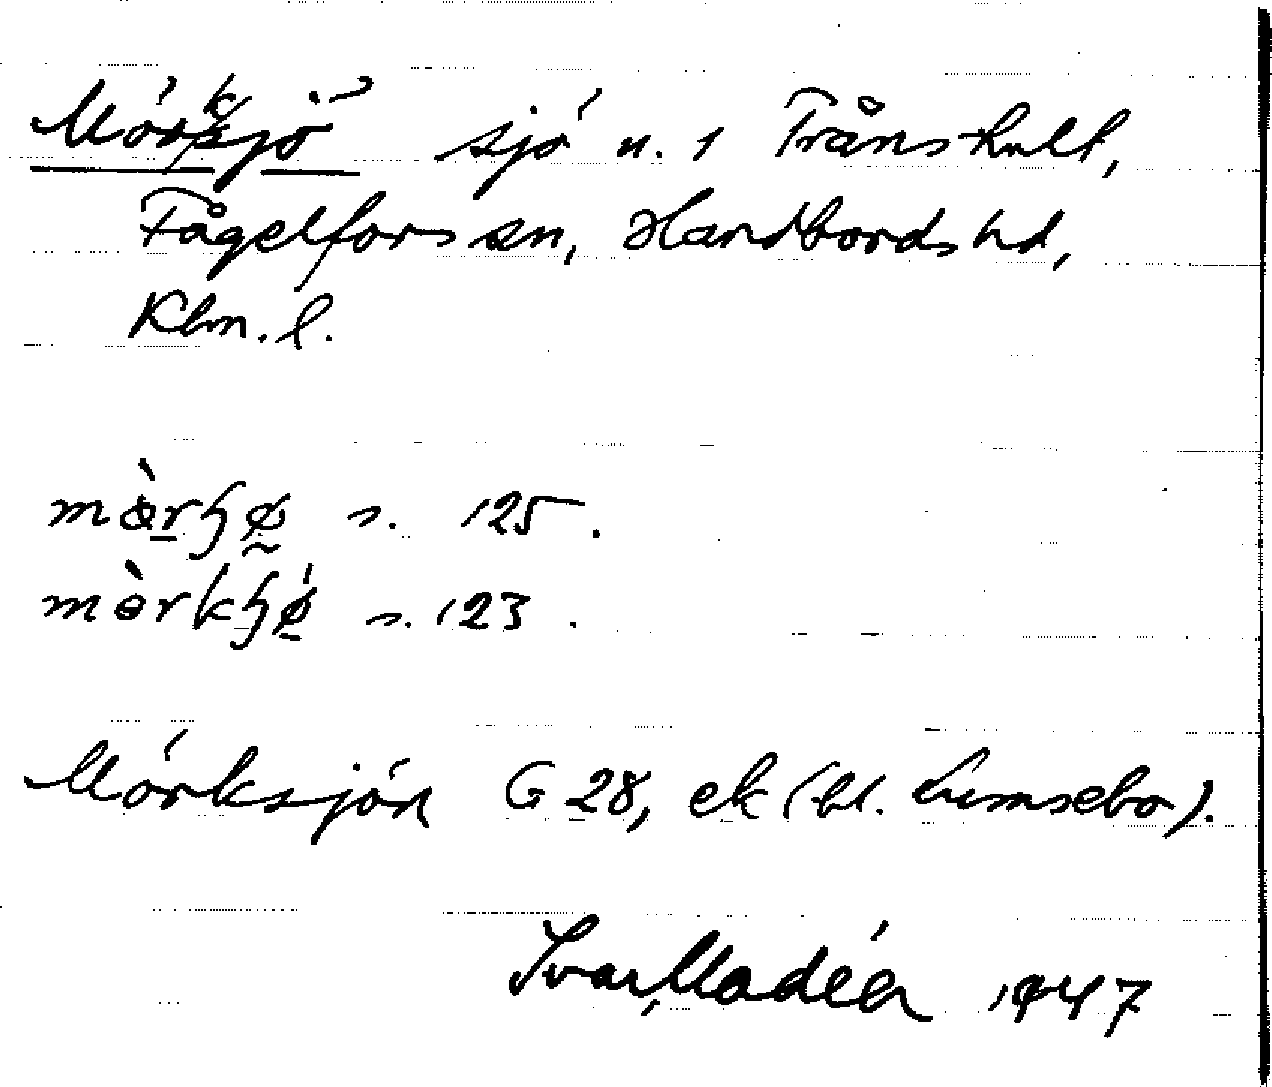 Mörksjö sjö u. 1 Trånshult,
Fågelfors sn, Handbords hd,
Klm. l.
mə̀rɧø s. 125.
mə̀rkɧø s. 123.
Mörksjön G 28, ek (bl. Lemsebo).
Ivar Modéer 1947